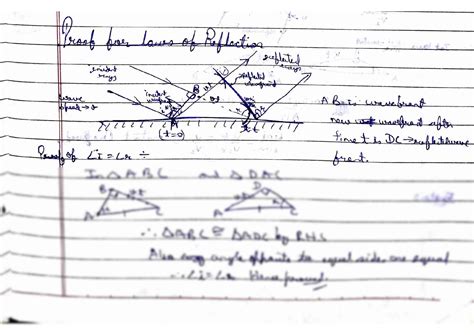 Proof for Laws of Reflection
reflected
rays
incident
rays
incident
wavefront
reflected
wavefront
wave
speed → v
A
(t=0)
AB → is wavefront
new wavefront after
time t is DC → reflected wave
front.
Proof of ∠i = ∠r ÷
In △ABC and △DAC
B
A
C
D
A
C
∴ △ABC ≅ △ADC by RHS
Also angle opposite to equal side are equal
∴ ∠i = ∠r Hence proved